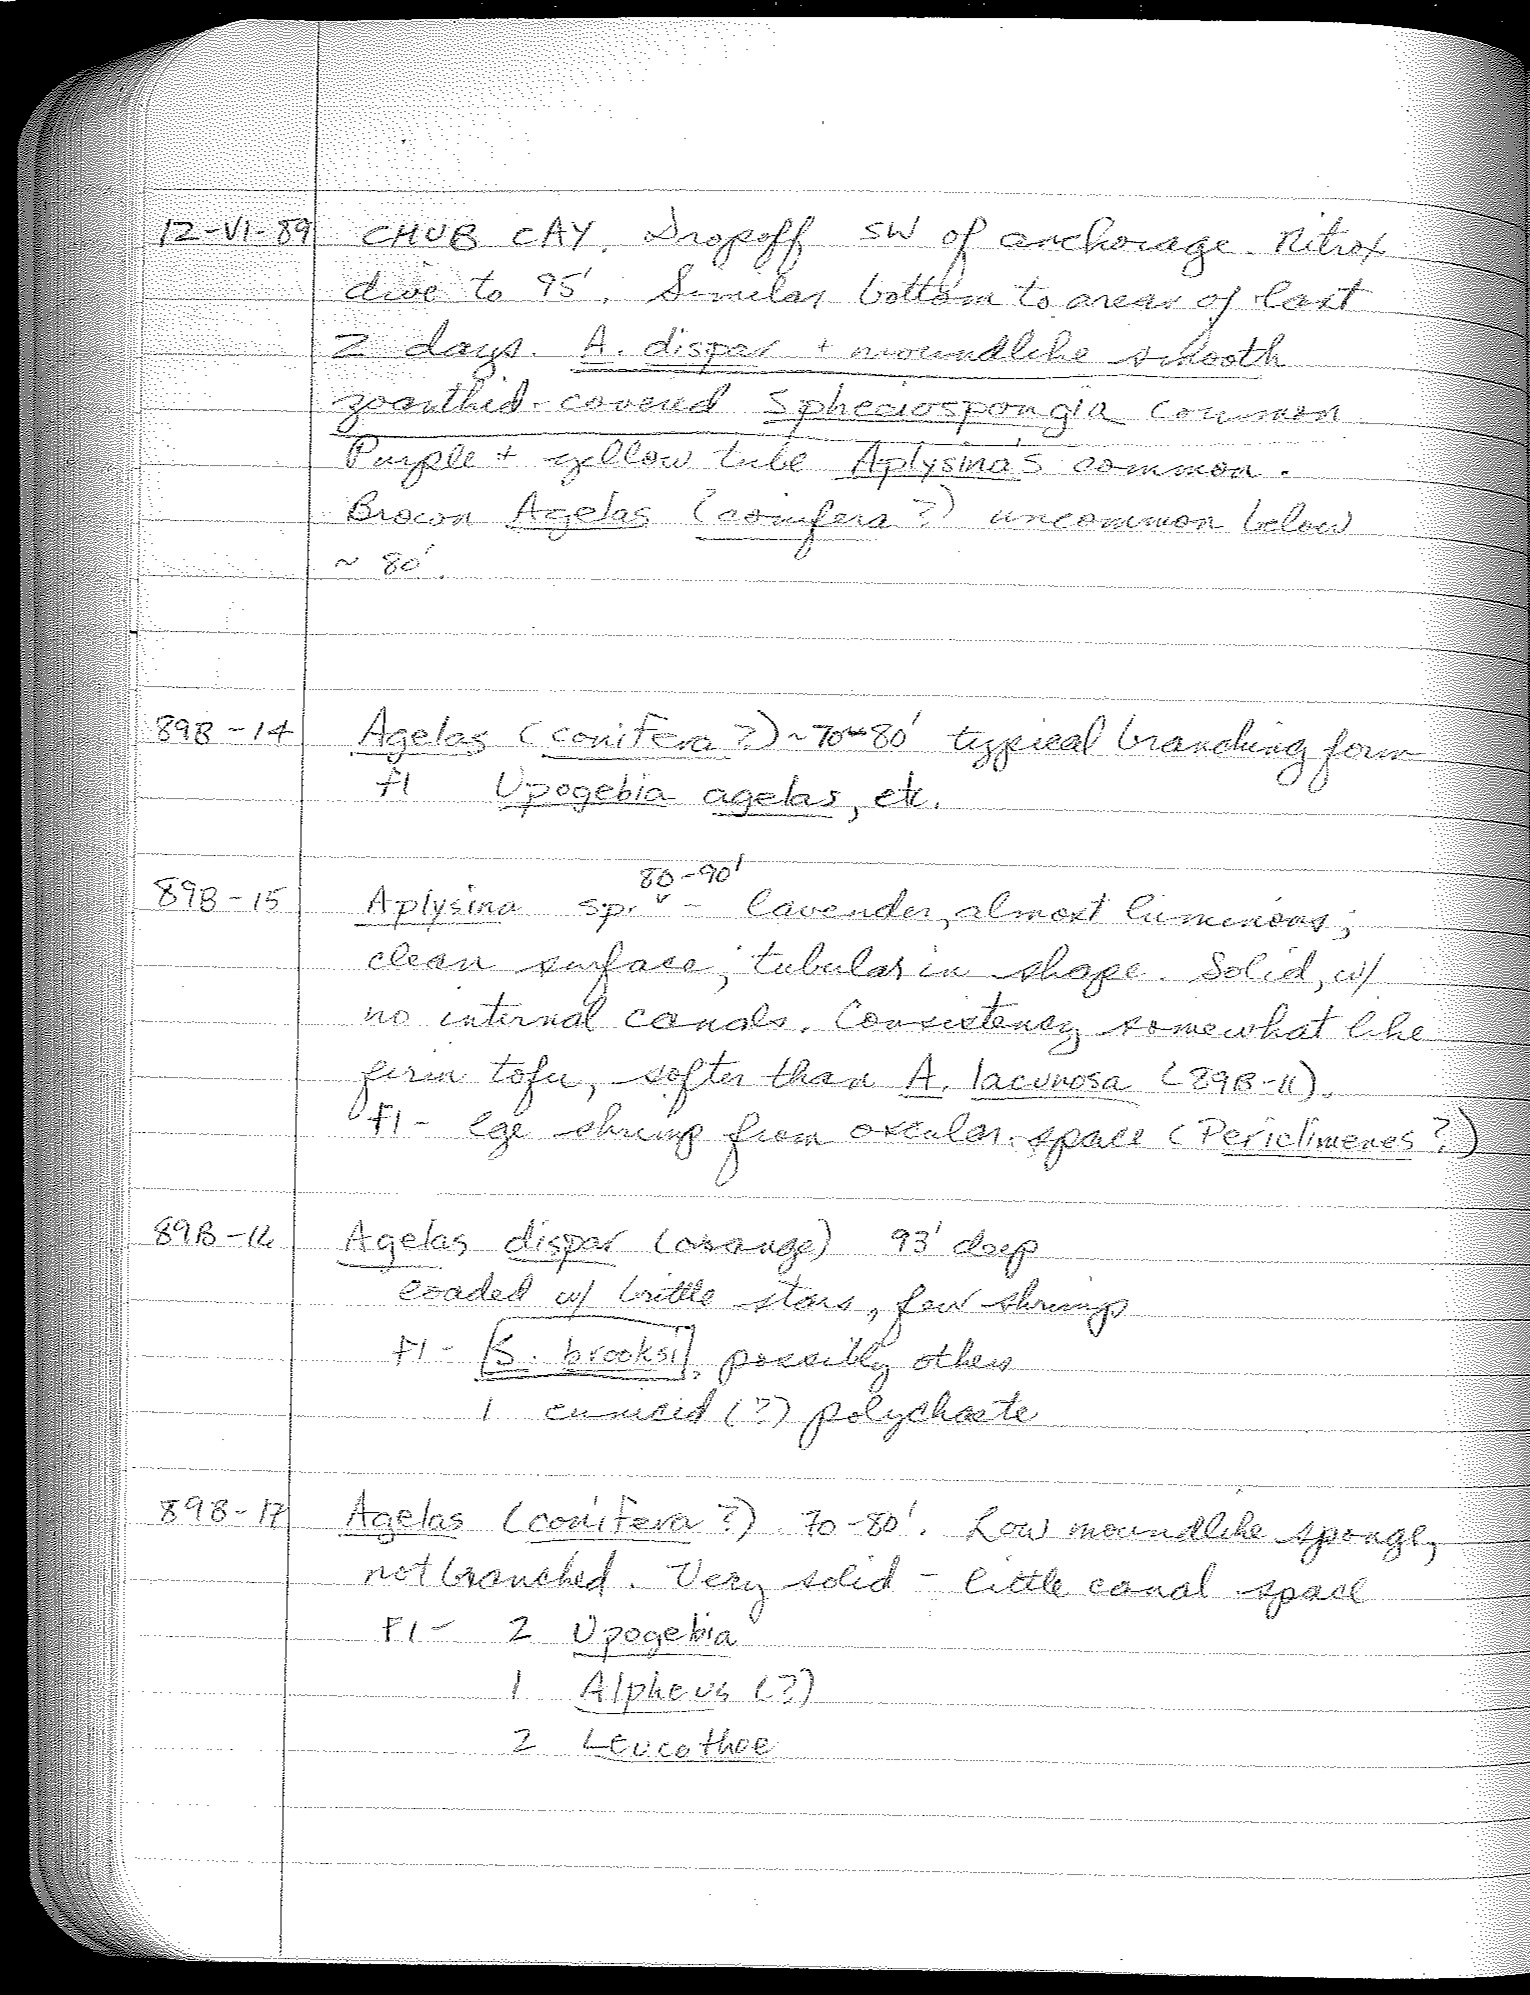 12-VI-89 CHUB CAY. Dropoff SW of anchorage. Nitrox
dive to 95'. Similar bottom to areas of last
2 days. A. dispar + moundlike smooth
zoanthid-covered Spheciospongia common
Purple + yellow tube Aplysina's common.
Brown Agelas (conifera?) uncommon below
~ 80'.
89B-14 Agelas (conifera?) ~70-80' typical branching form
F1 Upogebia agelas, etc.
80-90'
89B-15 Aplysina sp. ˅ - lavender, almost luminous;
clean surface; tubular in shape. Solid, w/
no internal canals. Consistency somewhat like
firm tofu, softer than A. lacunosa (89B-11).
F1 - lge shrimp from oscular space (Periclimenes?)
89B-16 Agelas dispar (orange) 93' deep
loaded w/ brittle stars, few shrimp
F1 - S. brooksi, possibly others
1 eunicid (?) polychaete
89B-17 Agelas (conifera?) 70-80'. Low moundlike sponge,
not branched. Very solid - little canal space
F1 - 2 Upogebia
1 Alpheus (?)
2 Leucothoe